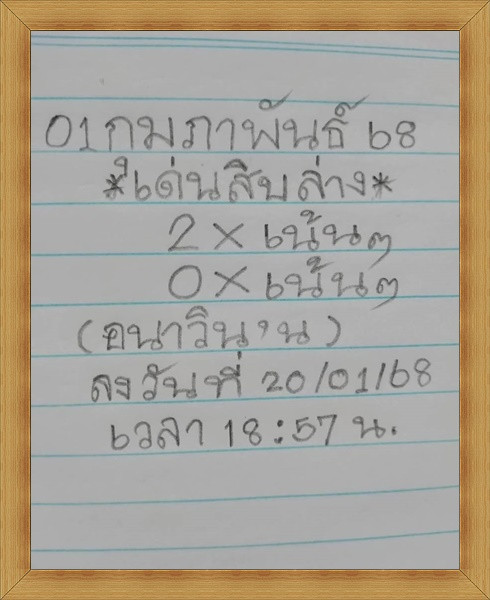 01 กุมภาพันธ์ 68
*เด่นสิบล่าง*
2 X เน้นๆ
0 X เน้นๆ
(อนาวิน,น)
ลงวันที่ 20/01/68
เวลา 18:57 น.